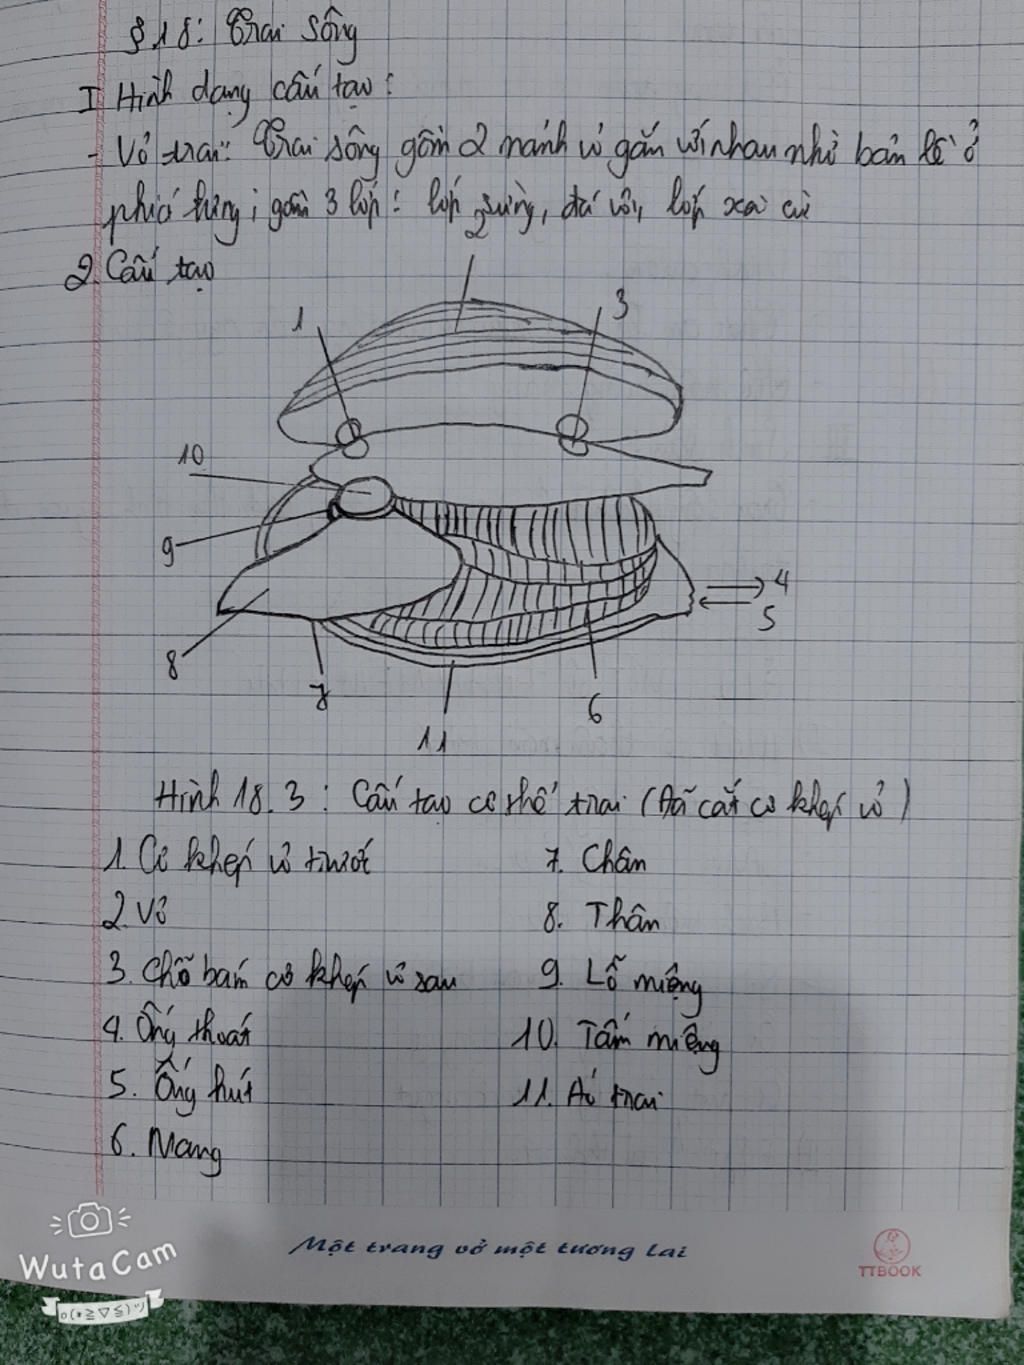 §18: Trai sông
I Hình dạng cấu tạo:
- Vỏ trai: Trai sông gồm 2 mảnh vỏ gắn với nhau nhờ bản lề ở
phía lưng; gồm 3 lớp: lớp sừng, đá vôi, lớp xà cừ
2. Cấu tạo
2
1
3
10
9
4
5
8
7
6
11
Hình 18.3: Cấu tạo cơ thể trai (Đã cắt cơ khép vỏ)
1. Cơ khép vỏ trước
7. Chân
2. Vỏ
8. Thân
3. Chỗ bám cơ khép vỏ sau
9. Lỗ miệng
4. Ống thoát
10. Tấm miệng
5. Ống hút
11. Áo trai
6. Mang
WutaCam
Một trang vở một tương lai
TTBOOK